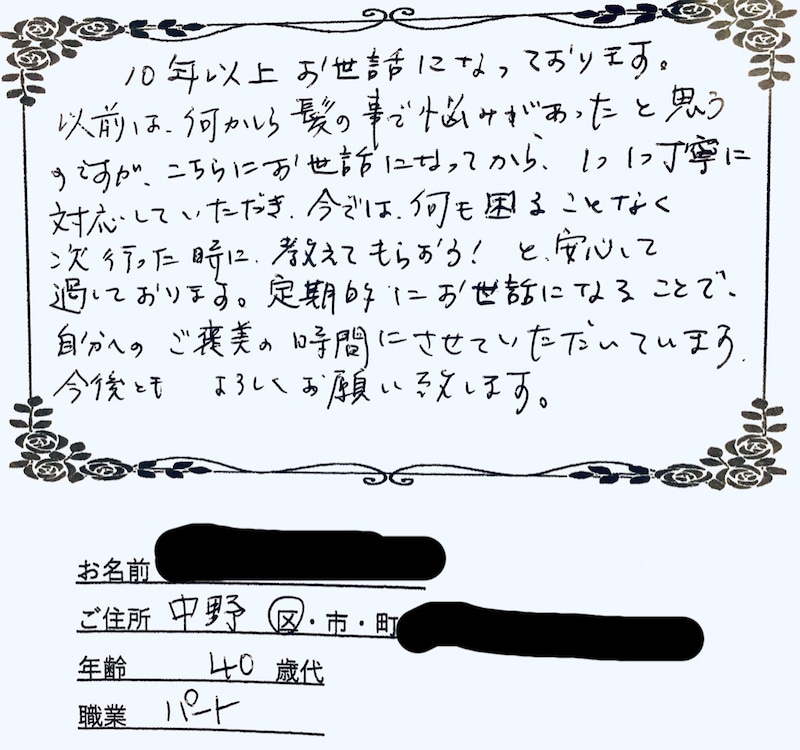 10年以上 お世話になっております。
以前は、何かしら髪の事で悩みがあったと思う
のですが、こちらにお世話になってから、1つ1つ丁寧に
対応していただき、今では、何も困ることなく
次行った時に、教えてもらおう！と、安心して
過しております。定期的にお世話になることで、
自分へのご褒美の時間にさせていただいています。
今後とも よろしくお願い致します。
お名前
ご住所 中野 区・市・町
年齢 40 歳代
職業 パート